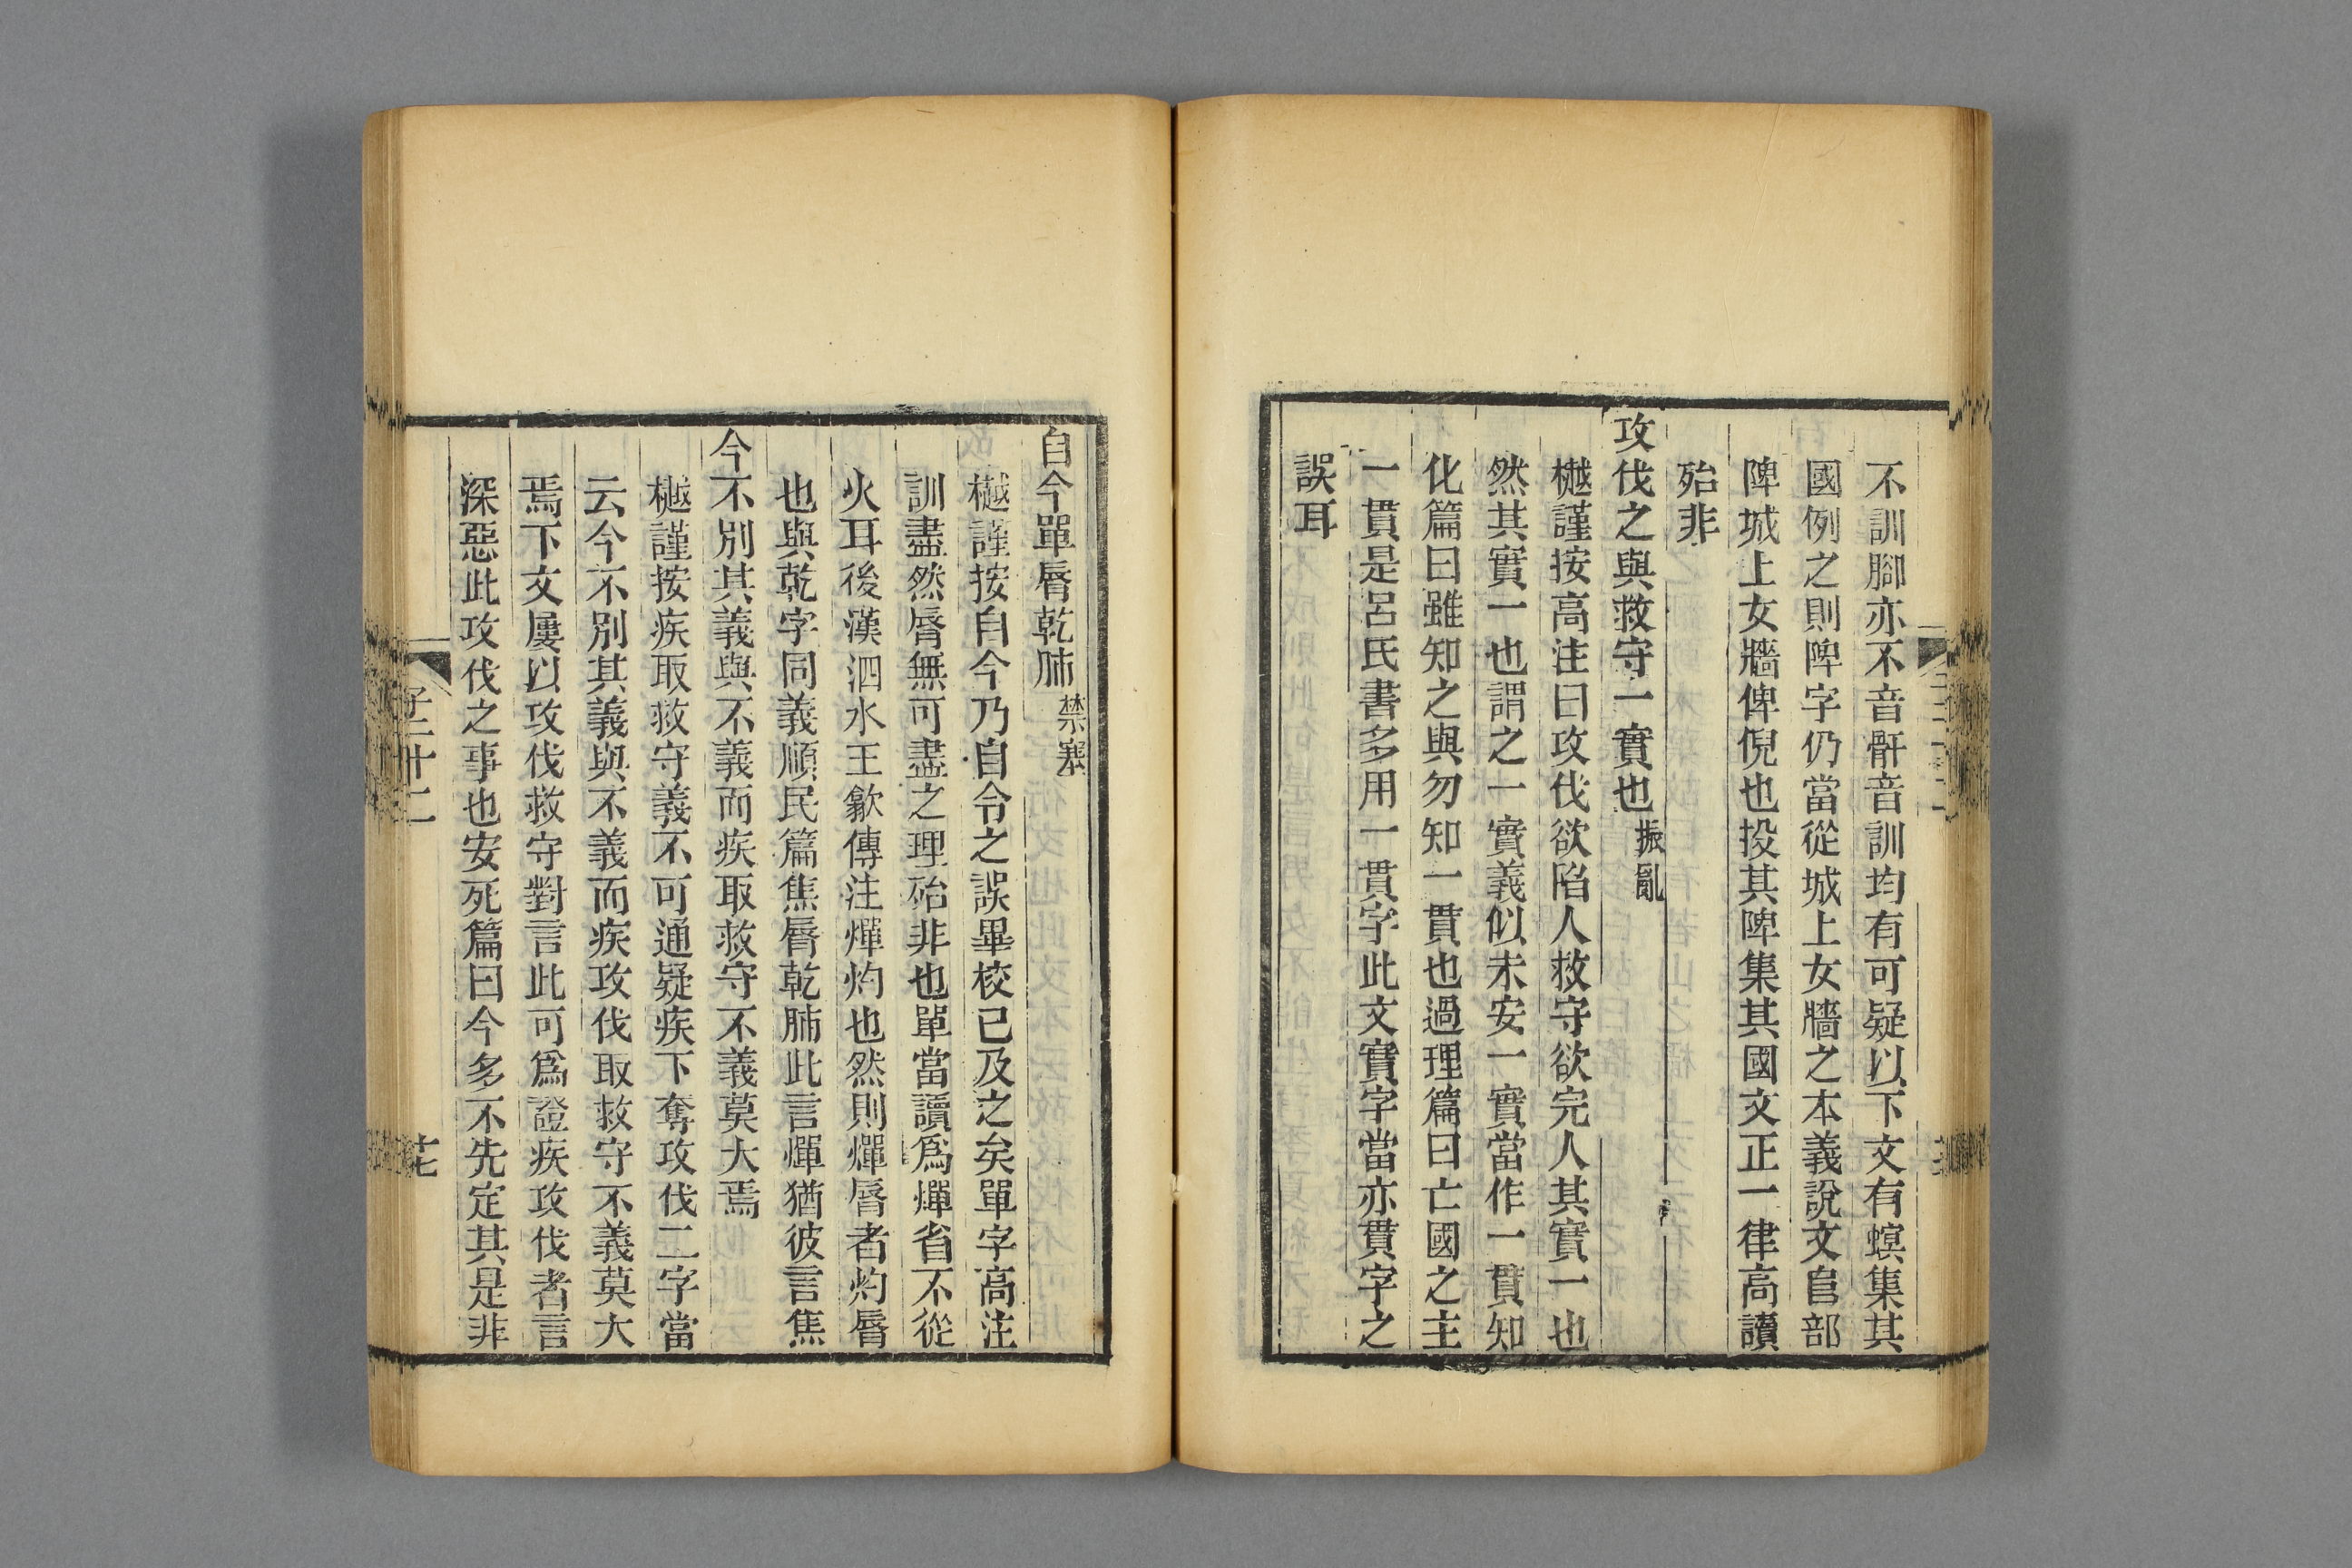 不訓腳亦不音骭音訓均有可疑以下文有螟集其
國例之則陴字仍當從城上女牆之本義說文𨸏部
陴城上女牆俾倪也投其陴集其國文正一律高讀
殆非
攻伐之與救守一實也振亂
樾謹按高注曰攻伐欲陷人救守欲完人其實一也
然其實一也謂之一實義似未安一實當作一貫知
化篇曰雖知之與勿知一貫也過理篇曰亡國之主
一貫是呂氏書多用一貫字此文實字當亦貫字之
誤耳
自今單脣乾肺禁塞
樾謹按自今乃自令之誤畢校已及之矣單字高注
訓盡然脣無可盡之理殆非也單當讀爲燀省不從
火耳後漢泗水王歙傳注燀灼也然則燀脣者灼脣
也與乾字同義順民篇焦脣乾肺此言燀猶彼言焦
今不別其義與不義而疾取救守不義莫大焉
樾謹按疾取救守義不可通疑疾下奪攻伐二字當
云今不別其義與不義而疾攻伐取救守不義莫大
焉下文屢以攻伐救守對言此可爲證疾攻伐者言
深惡此攻伐之事也安死篇曰今多不先定其是非
子二十二